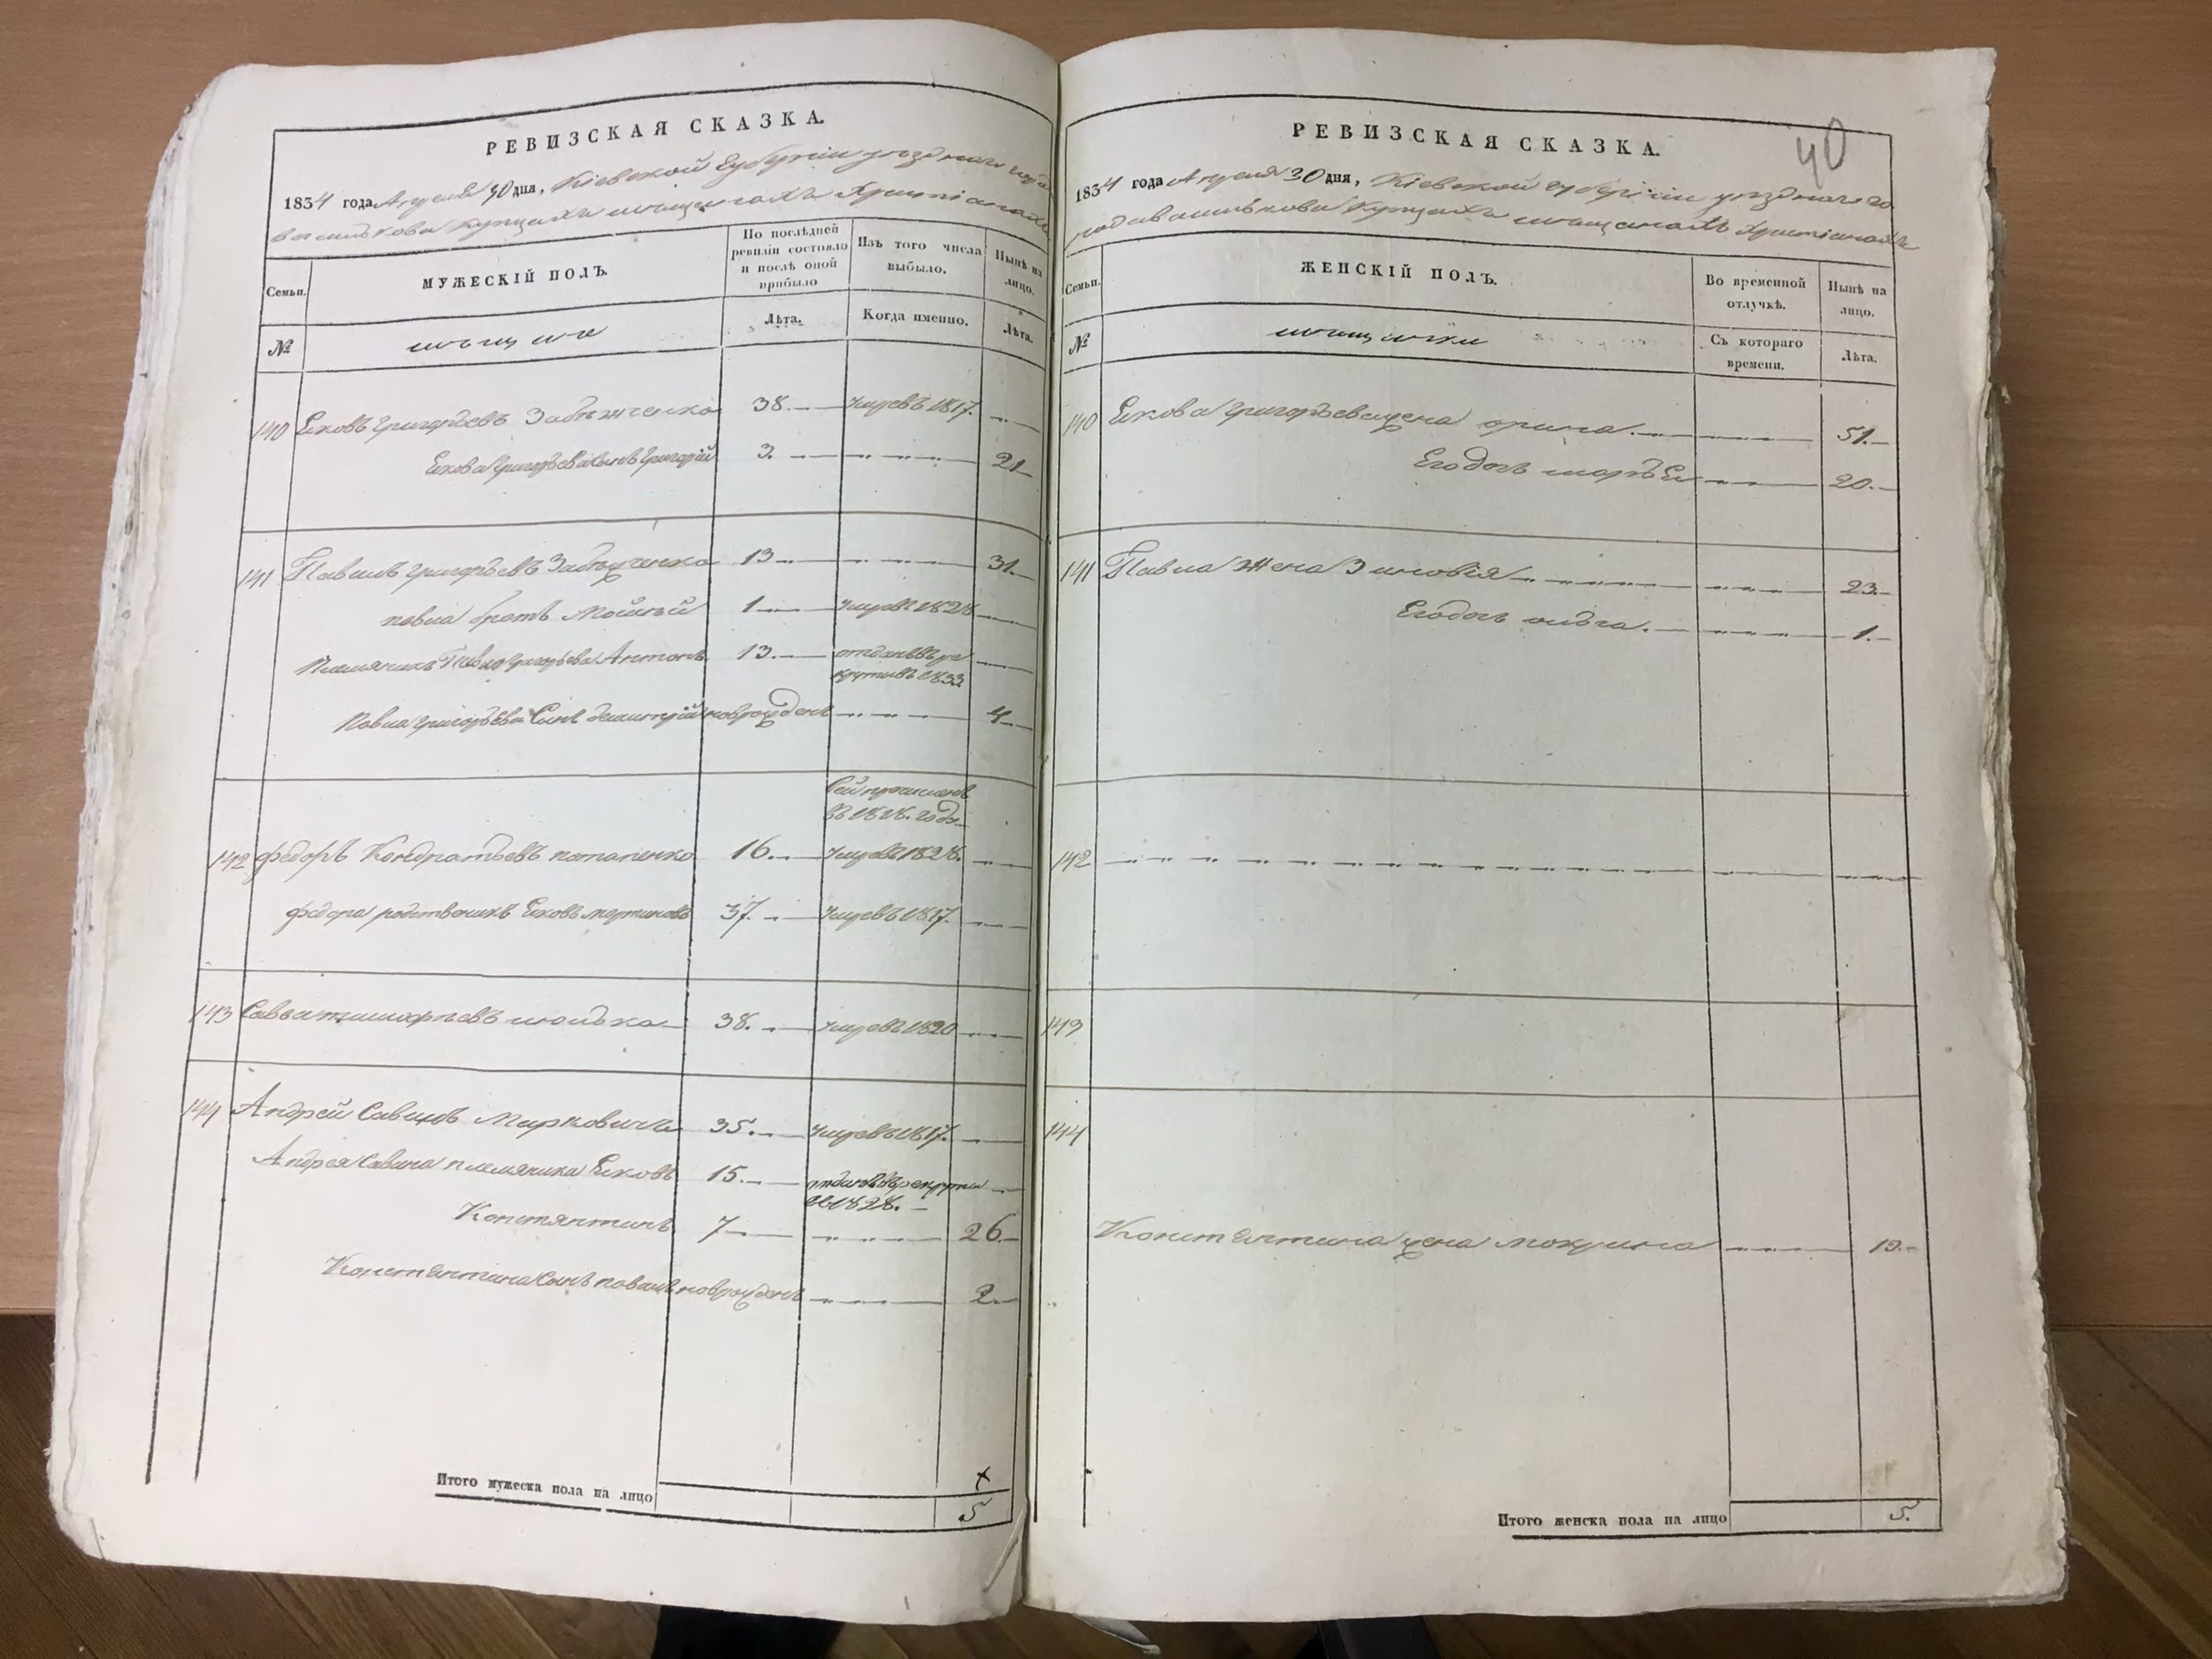 РЕВИЗСКАЯ СКАЗКА.
1834 года Апреля 30 дня, Кіевской Губерніи уѣзднаго
василькова Купцахъ мѣщанахъ Христіанахъ
Семьи.
МУЖЕСКІЙ ПОЛЪ.
По послѣдней ревизіи состояло и послѣ оной прибыло
Изъ того числа выбыло.
Нынѣ на лицо.
№
мѣщане
Лѣта.
Когда именно.
Лѣта.
140 Ековъ Григорьевъ Забѣжченко 38. умре въ 1817.
Екова Григорьева Сынъ Григорій 3. 21
141 Павилъ Григорьевъ Забѣжченко 13 31.
павла братъ Мойсѣй 1 умре въ 1828
Племячикъ Павла Григорьева Антонъ 13. отданъ въ ре
круты въ 1833
Павла Григорьева Сынъ димитрій новорожденъ 4
Сей причисленъ
въ 1828. годе
142 федоръ Кондратьевъ потапенко 16. умре въ 1828.
федора родственикъ Ековъ мартиновъ 37. умре въ 1817.
143 Савва тимофѣевъ люлька 38. умре въ 1820
144 Андрей Савинъ Марковичъ 35. умре въ 1817.
Андрея Савина племячика Ековъ 15. отданъ въ рекруты
въ 1828.
Константинъ 7 26
Константина Сынъ павилъ новорожденъ 2.
Итого мужеска пола на лицо
5
РЕВИЗСКАЯ СКАЗКА.
40
1834 года Апреля 30 дня, Кіевской губерніи уѣзднаго го
рода василькова Купцахъ мѣщанахъ Христіанахъ
Семьи.
ЖЕНСКІЙ ПОЛЪ.
Во временной отлучкѣ.
Нынѣ на лицо.
№
мѣщанки
Съ котораго времени.
Лѣта.
140 Екова Григорьева жена орина 51.
Его дочь марья 20.
141 Павла Жена Зиновія 23.
Его дочь ольга. 1.
142
143
144
Константина жена мокрина 19.
Итого женска пола на лицо
5.